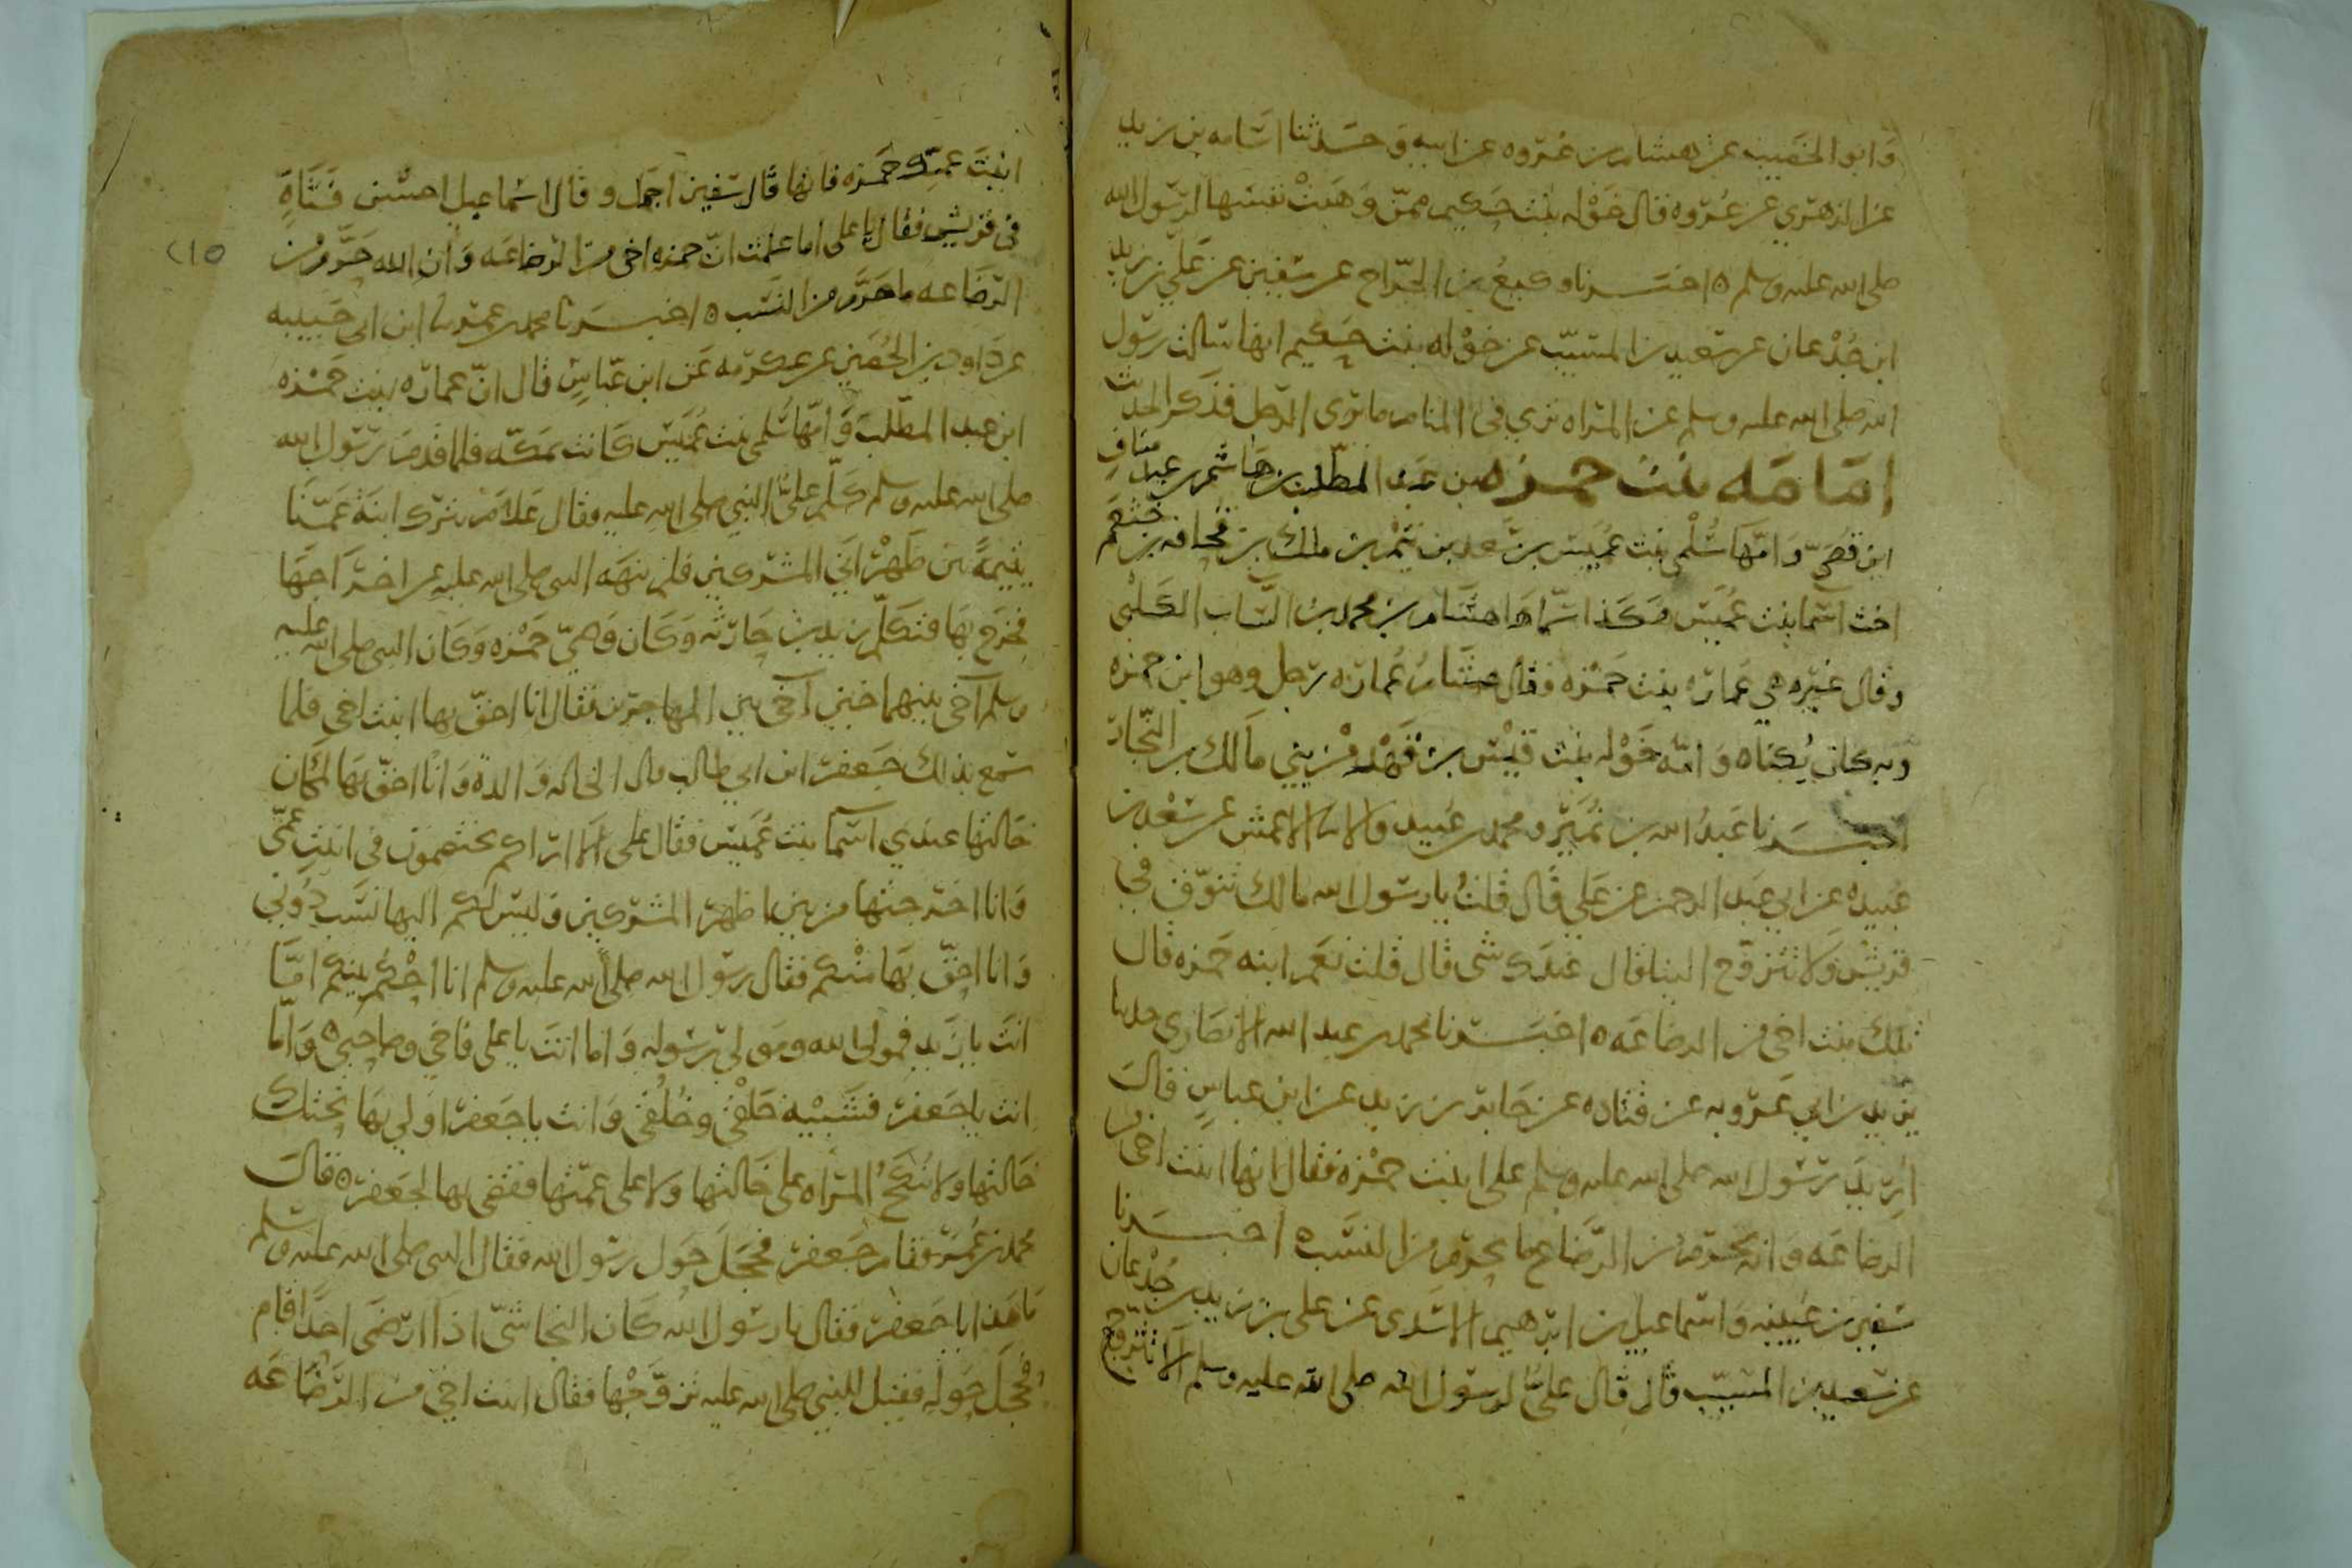 وابو الخصيب عن هشام بن عروه عن ابيه وحدثنا اسامه بن زيد
عن الزهري عن عروه قال خوله بنت حكيم ممن وهبت نفسها لرسول الله
صلى الله عليه وسلم ٥ اخبرنا وكيع بن الجراح عن سفين عن علي بن زيد
ابن جدعان عن سعيد بن المسيب عن خوله بنت حكيم انها سالت رسول
الله صلى الله عليه وسلم عن المراه ترى في المنام ما يرى الرجل فذكر الحديث
امامه بنت حمزه بن عبد المطلب بن هاشم بن عبد مناف
ابن قصي وامها سلمى بنت عميس بن معد بن تيم بن ملك بن قحافه بن خثعم
اخت اسما بنت عميس هكذا سماها هشام بن محمد بن السايب الكلبي
وقال غيره هي عماره بنت حمزه وقال هشام عماره رجل وهو ابن حمزه
وبه كان يكناه وامه خوله بنت قيس بن قهد من بني مالك بن النجار
اخبرنا عبد الله بن نمير ومحمد بن عبيد قالا نا الاعمش عن سعد بن
عبيده عن ابي عبد الرحمن عن علي قال قلت يا رسول الله ما لك تتوق في
قريش ولا تتزوج الينا قال عندك شى قال قلت نعم ابنه حمزه قال
تلك بنت اخي من الرضاعه ٥ اخبرنا محمد بن عبد الله الانصاري حدثنا
يزيد بن ابي عروبه عن قتاده عن جابر بن زيد عن ابن عباس قال
اريد رسول الله صلى الله عليه وسلم على ابنت حمزه فقال انها ابنت اخي من
الرضاعه وانه يحرم من الرضاع ما يحرم من النسب ٥ اخبرنا
سفين بن عيينه واسماعيل بن ابرهيم الاسدي عن على بن زيد بن جدعان
عن سعيد بن المسيب قال قال علي لرسول الله صلى الله عليه وسلم الا تتزوج
ابنت عمك حمزه فانها قال سفين اجمل وقال اسماعيل احسن فتاة
في قريش فقال يا على اما علمت ان حمزه اخي من الرضاعه وان الله حرم من
٢١٥
الرضاعه ما حرم من النسب ٥ اخبرنا محمد بن عمر نا ابن ابي حبيبه
عن داود بن الحصين عن عكرمه عن ابن عباس قال ان عماره بنت حمزه
ابن عبد المطلب وامها سلمى بنت عميس كانت بمكه فلما قدم رسول الله
صلى الله عليه وسلم كلم علي النبي صلى الله عليه فقال علام نترك ابنة عمنا
يتيمة بين ظهراني المشركين فلم ينهه النبي صلى الله عليه عن اخراجها
فخرج بها فتكلم زيد بن حارثه وكان وصي حمزه وكان النبي صلى الله عليه
وسلم آخى بينهما حين آخى بين المهاجرين فقال انا احق بها ابنت اخي فلما
سمع بذلك جعفر ابن ابي طالب قال الخاله والدة وانا احق بها لمكان
خالتها عندي اسما بنت عميس فقال على الا اراكم تختصمون في ابنت عمي
وانا اخرجتها من بين اظهر المشركين وليس لكم اليها نسب دوني
وانا احق بها منكم فقال رسول الله صلى الله عليه وسلم انا احكم بينكم اما
انت يا زيد فمولى الله ومولى رسوله واما انت يا علي فاخي وصاحبي ٥ واما
انت يا جعفر فشبيه خلقي وخلقي وانت يا جعفر اولى بها تحتك
خالتها ولا تنكح المراه على خالتها ولا على عمتها فقضى بها لجعفر ٥ قال
محمد بن عمر وقام جعفر فحجل حول رسول الله فقال النبي صلى الله عليه وسلم
ما هذا يا جعفر فقال يا رسول الله كان النجاشي اذا ارضى احدا قام
فحجل حوله فقيل للنبي صلى الله عليه تزوجها فقال ابنت اخي من الرضاعه